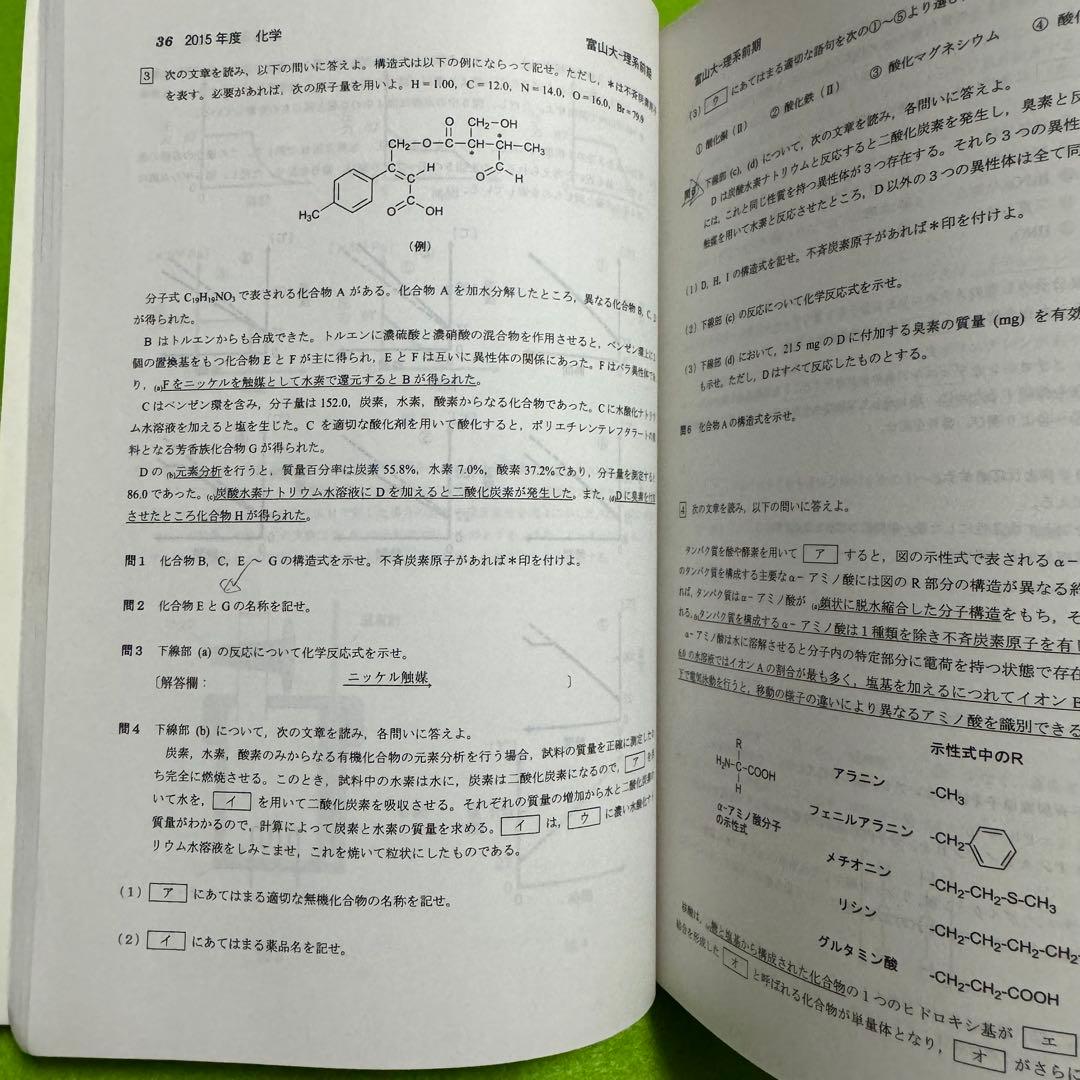 36 2015年度 化学
富山大-理系前期
3 次の文章を読み，以下の問いに答えよ。構造式は以下の例にならって記せ。ただし，＊は不斉炭素原子
を表す。必要があれば，次の原子量を用いよ。H＝1.00，C＝12.0，N＝14.0，O＝16.0，Br＝79.9
O CH₂-OH
CH₂-O-C-C-C-CH₃
* *
C=C H O C H
H₃C O C OH
（例）
分子式 C₁₉H₁₉NO₃ で表される化合物 A がある。化合物 A を加水分解したところ，異なる化合物 B, C, D
が得られた。
B はトルエンからも合成できた。トルエンに濃硫酸と濃硝酸の混合物を作用させると，ベンゼン環上に
個の置換基をもつ化合物 E と F が主に得られ，E と F は互いに異性体の関係にあった。F はパラ異性体で
り，(a)F をニッケルを触媒として水素で還元すると B が得られた。
C はベンゼン環を含み，分子量は 152.0，炭素，水素，酸素からなる化合物であった。C に水酸化ナトリ
ム水溶液を加えると塩を生じた。C を適切な酸化剤を用いて酸化すると，ポリエチレンテレフタラートの
料となる芳香族化合物 G が得られた。
D の (b)元素分析を行うと，質量百分率は炭素 55.8%，水素 7.0%，酸素 37.2%であり，分子量を測定すると
86.0 であった。(c)炭酸水素ナトリウム水溶液に D を加えると二酸化炭素が発生した。また，(d)D に臭素を付加
させたところ化合物 H が得られた。
問1 化合物 B，C，E ～ G の構造式を示せ。不斉炭素原子があれば＊印を付けよ。
問2 化合物 E と G の名称を記せ。
問3 下線部 (a) の反応について化学反応式を示せ。
〔解答欄： ニッケル触媒 〕
問4 下線部 (b) について，次の文章を読み，各問に答えよ。
炭素，水素，酸素のみからなる有機化合物の元素分析を行う場合，試料の質量を正確に測定した
ち完全に燃焼させる。このとき，試料中の水素は水に，炭素は二酸化炭素になるので，ア を
いて水を，イ を用いて二酸化炭素を吸収させる。それぞれの質量の増加から水と二酸化炭素の
質量がわかるので，計算によって炭素と水素の質量を求める。イ は，ウ に濃い水酸化ナ
リウム水溶液をしみこませ，これを焼いて粒状にしたものである。
(1) ア にあてはまる適切な無機化合物の名称を記せ。
(2) イ にあてはまる薬品名を記せ。
富山大-理系前期
(3) ウ にあてはまる適切な語句を次の①～⑤より選び
① 酸化銅（Ⅱ） ② 酸化鉄（Ⅱ） ③ 酸化マグネシウム ④ 酸化
下線部 (c), (d) について，次の文章を読み，各問いに答えよ。
D は炭酸水素ナトリウムと反応すると二酸化炭素を発生し，臭素と反
には，これと同じ性質を持つ異性体が3つ存在する。それら3つの異性
触媒を用いて水素と反応させたところ，D 以外の3つの異性体は全て同
(1) D, H, I の構造式を記せ。不斉炭素原子があれば＊印を付けよ。
(2) 下線部 (c) の反応について化学反応式を示せ。
(3) 下線部 (d) において，21.5 mg の D に付加する臭素の質量 (mg) を有効
も示せ。ただし，D はすべて反応したものとする。
問6 化合物 A の構造式を示せ。
4 次の文章を読み，以下の問いに答えよ。
タンパク質を酸や酵素を用いて ア すると，図の示性式で表される α－
のタンパク質を構成する主要な α－アミノ酸には図の R 部分の構造が異なる約
れば，タンパク質は α－アミノ酸が (a)鎖状に脱水縮合した分子構造をもち，そ
れる。(b)タンパク質を構成する α－アミノ酸は1種類を除き不斉炭素原子を有し
α－アミノ酸は水に溶解させると分子内の特定部分に電荷を持つ状態で存在
6.0 の水溶液ではイオン A の割合が最も多く，塩基を加えるにつれてイオン B
下で電気泳動を行うと，移動の様子の違いにより異なるアミノ酸を識別できる
R
H₂N-C-COOH
H
α-アミノ酸分子
の示性式
示性式中のR
アラニン -CH₃
フェニルアラニン -CH₂-
メチオニン -CH₂-CH₂-S-CH₃
リシン -CH₂-CH₂-CH₂-CH₂-
グルタミン酸 -CH₂-CH₂-COOH
核酸は，酸と塩基から構成された化合物の1つのヒドロキシ基が エ
結合を形成した オ と呼ばれる化合物が単量体となり，オ がさらに